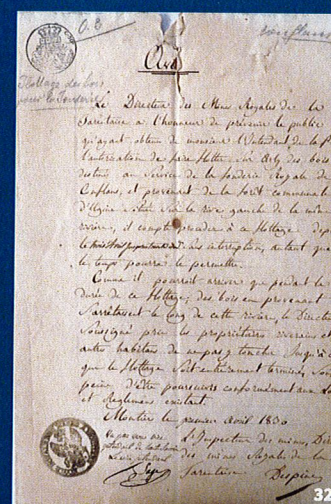 O. 2
Conflans
Flottage des bois
pour la fonderie
Avis
Le Directeur des Mines Royales de la
Tarentaise a l'honneur de prévenir le public
qu'ayant obtenu de monsieur l'Intendant de la
l'autorisation de faire flotter sur Arly des bois
destinés au Service de la fonderie Royale de
Conflans, et provenant de la forêt communale
d'Ugine située sur la rive gauche de la même
rivière, il compte procéder à ce flottage
sans interruption, autant que
le temps pourra le permettre.
Comme il pourroit arriver que pendant la
durée de ce flottage, des bois en provenant
s'arrêtassent le long de cette rivière, le Directeur
Soussigné prie les propriétaires riverains et
autres habitans de ne pas y toucher jusqu'à
que le flottage soit entièrement terminé, sous
peine d'être poursuivis conformément aux
et Règlemens existant
Moutiers le premier Avril 1830
L'Inspecteur des mines, Dir
des mines Royales de la
Tarentaise
Despine
32